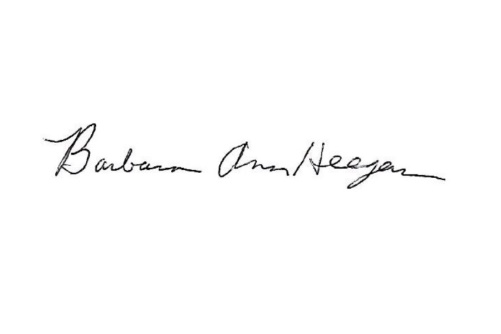 Barbara Ann Heegan